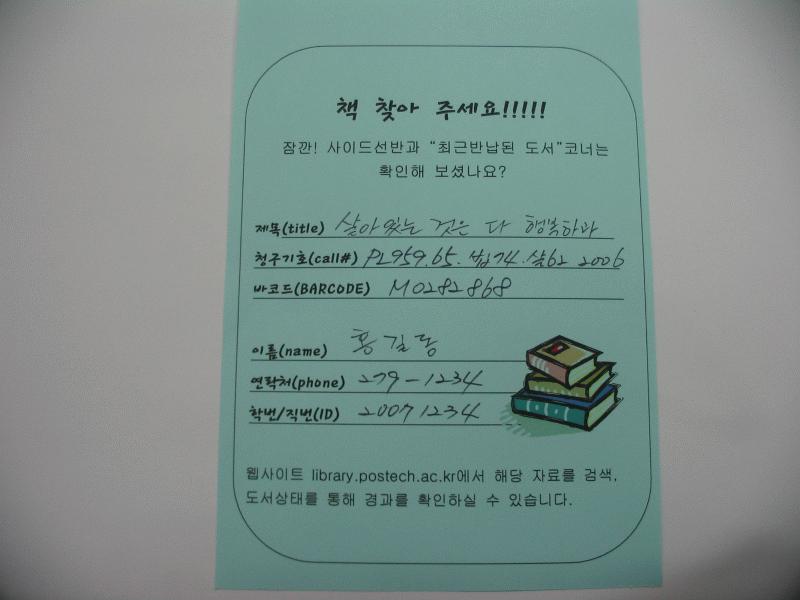 책 찾아 주세요!!!!!
잠깐! 사이드선반과 “최근반납된 도서”코너는
확인해 보셨나요?
제목(title) 살아있는 것은 다 행복하라
청구기호(call#) PL959.65.법74.살62 2006
바코드(BARCODE) M0282868
이름(name) 홍길동
연락처(phone) 279-1234
학번/직번(ID) 20071234
웹사이트 library.postech.ac.kr에서 해당 자료를 검색,
도서상태를 통해 경과를 확인하실 수 있습니다.